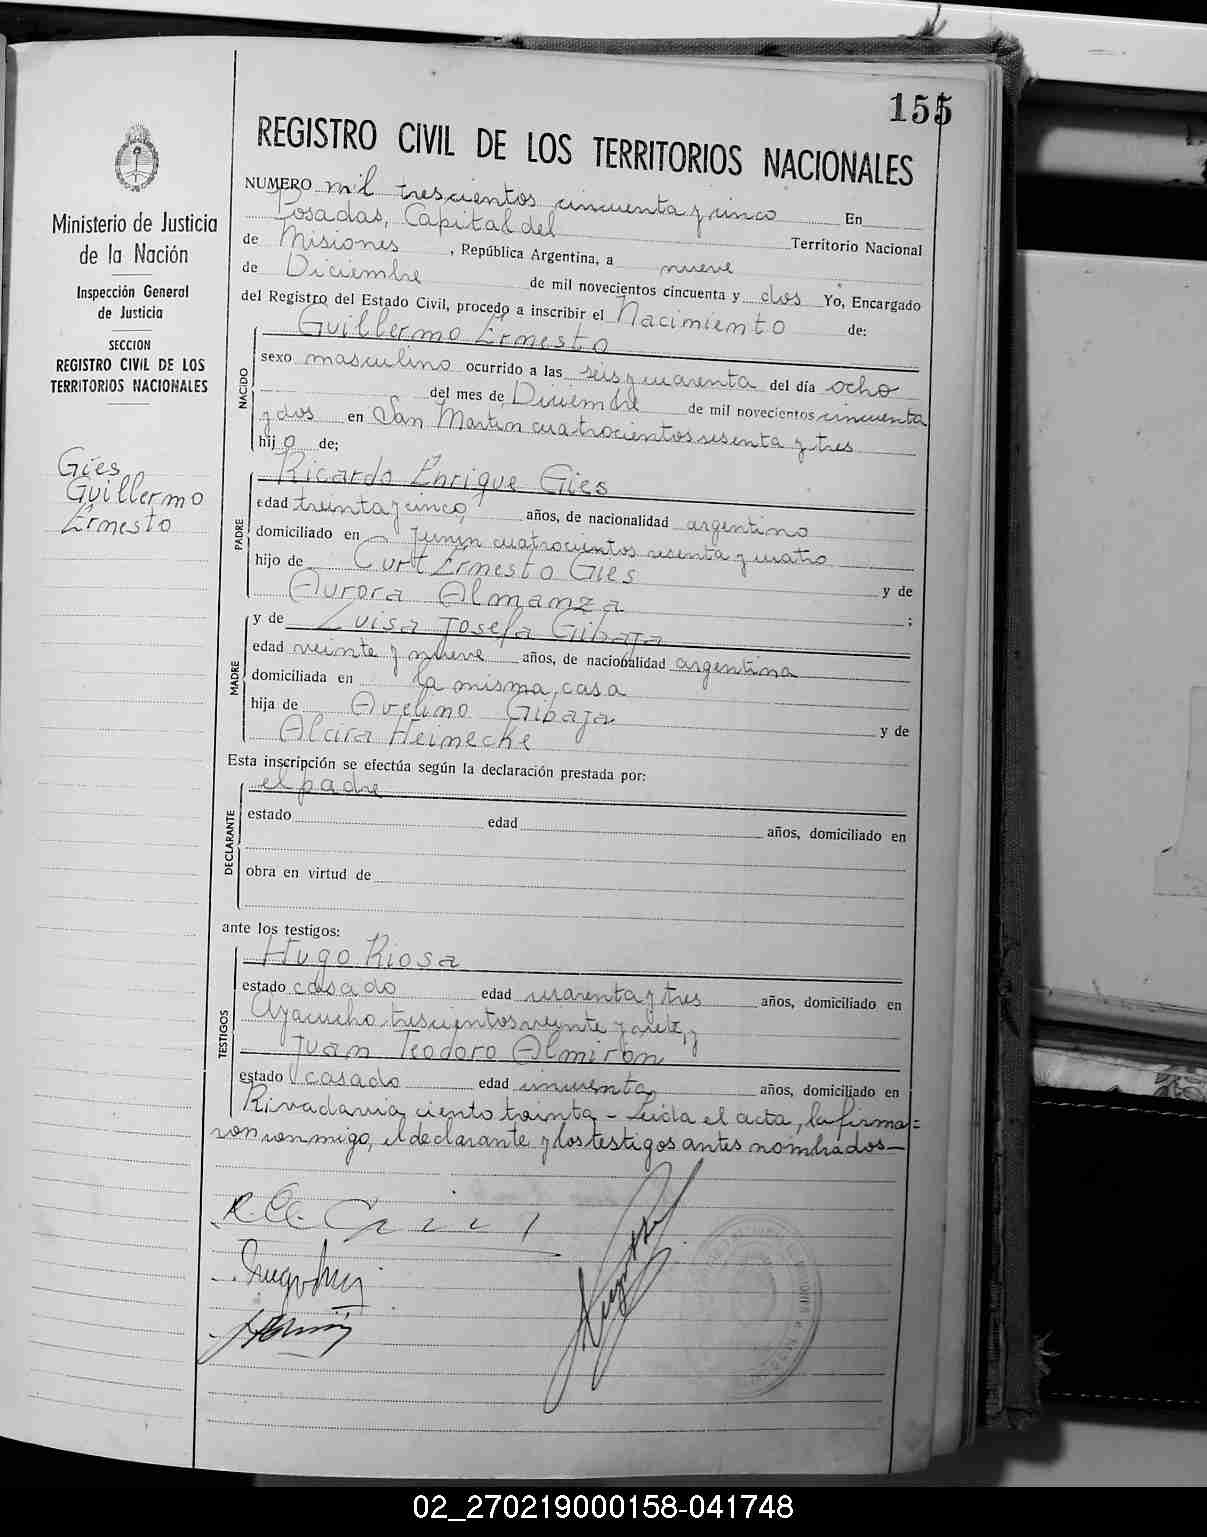 155
REGISTRO CIVIL DE LOS TERRITORIOS NACIONALES
Ministerio de Justicia
de la Nación
Inspección General
de Justicia
SECCION
REGISTRO CIVIL DE LOS
TERRITORIOS NACIONALES
Gies
Guillermo
Ernesto
NUMERO mil trescientos cincuenta y cinco En
Posadas, Capital del Territorio Nacional
de Misiones, República Argentina, a nueve
de Diciembre de mil novecientos cincuenta y dos Yo, Encargado
del Registro del Estado Civil, procedo a inscribir el Nacimiento de:
NACIDO
Guillermo Ernesto
sexo masculino ocurrido a las seis y cuarenta del día ocho
del mes de Diciembre de mil novecientos cincuenta
y dos en San Martin cuatrocientos sesenta y tres
hijo de;
PADRE
Ricardo Enrique Gies
edad treinta y cinco años, de nacionalidad argentino
domiciliado en Junin cuatrocientos sesenta y cuatro
hijo de Curt Ernesto Gies y de
Aurora Almanza ;
MADRE
y de Luisa Josefa Gibaja
edad veinte y nueve años, de nacionalidad argentina
domiciliada en la misma casa
hija de Avelino Gibaja y de
Alcira Heinecke
Esta inscripción se efectúa según la declaración prestada por:
DECLARANTE
el padre
estado edad años, domiciliado en
obra en virtud de
ante los testigos:
TESTIGOS
Hugo Riosa
estado casado edad cuarenta y tres años, domiciliado en
Ayacucho trescientos veinte y siete, y
Juan Teodoro Almirón
estado casado edad cincuenta años, domiciliado en
Rivadavia ciento treinta - Leída el acta, la firma=
ron conmigo, el declarante y los testigos antes nombrados—
02_270219000158-041748